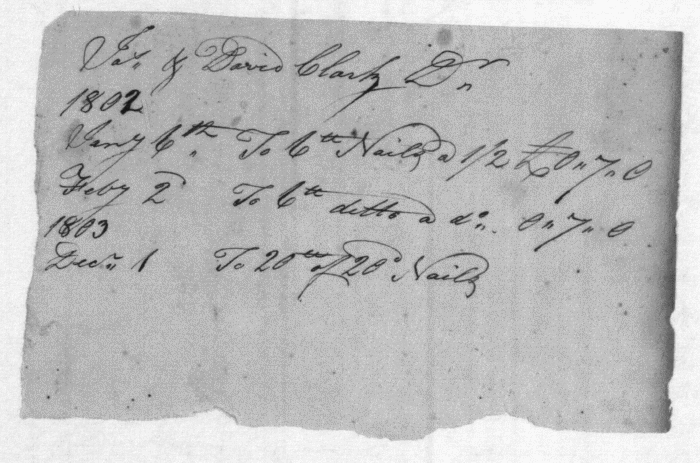 Jas & David Clark Dr
1802
Jany 6th To 6lb Nails a 1/2 £0 " 7 " 0
Feby 2 To 6lb ditto a do 0 " 7 " 0
1803
Decr 1 To 20lb of 20d Nails